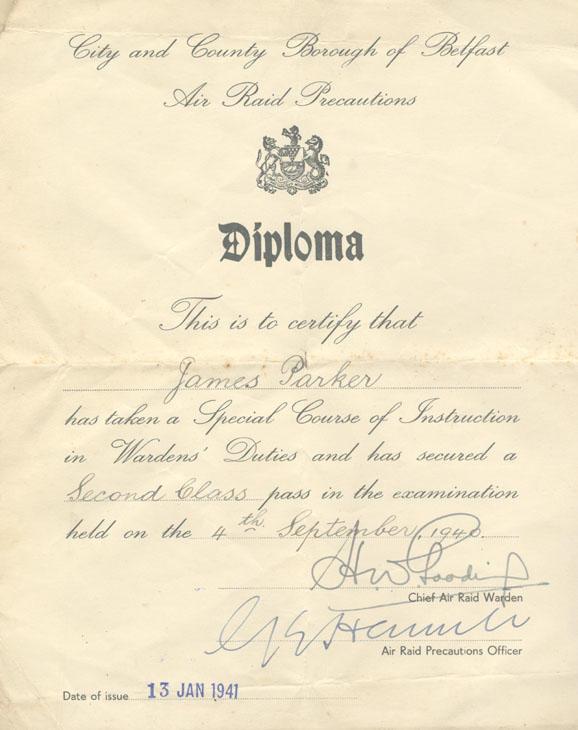 City and County Borough of Belfast
Air Raid Precautions
Diploma
This is to certify that
James Parker
has taken a Special Course of Instruction
in Wardens' Duties and has secured a
Second Class pass in the examination
held on the 4th September, 1940.
Chief Air Raid Warden
Air Raid Precautions Officer
Date of issue 13 JAN 1941